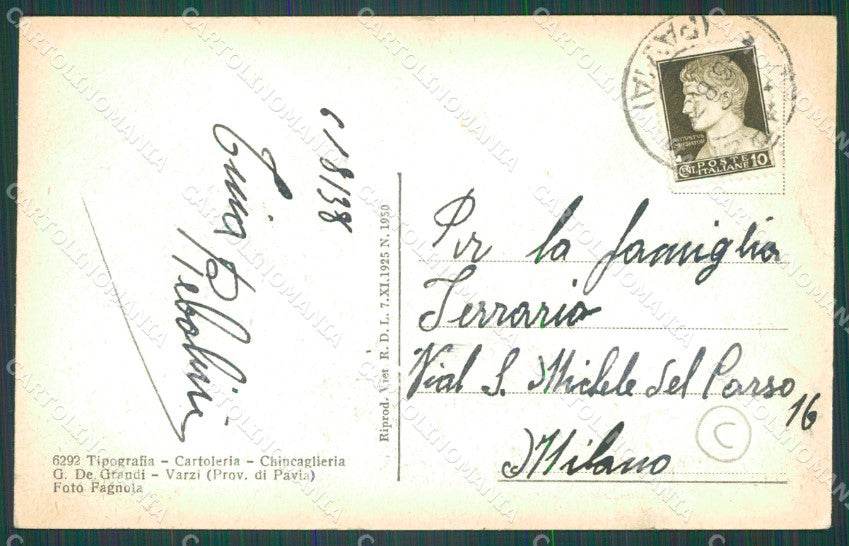 6/8/38
Riprod. Viet. R. D. L. 7.XI.1925 N. 1950
6292 Tipografia - Cartoleria - Chincaglieria
G. De Grandi - Varzi (Prov. di Pavia)
Foto Fagnola
AUGUSTUS
POSTE
ITALIANE 10
(PAVIA)
Per la famiglia
Ferrario
Vial S. Michele del Carso
16
Milano
C
CARTOLINOMANIA